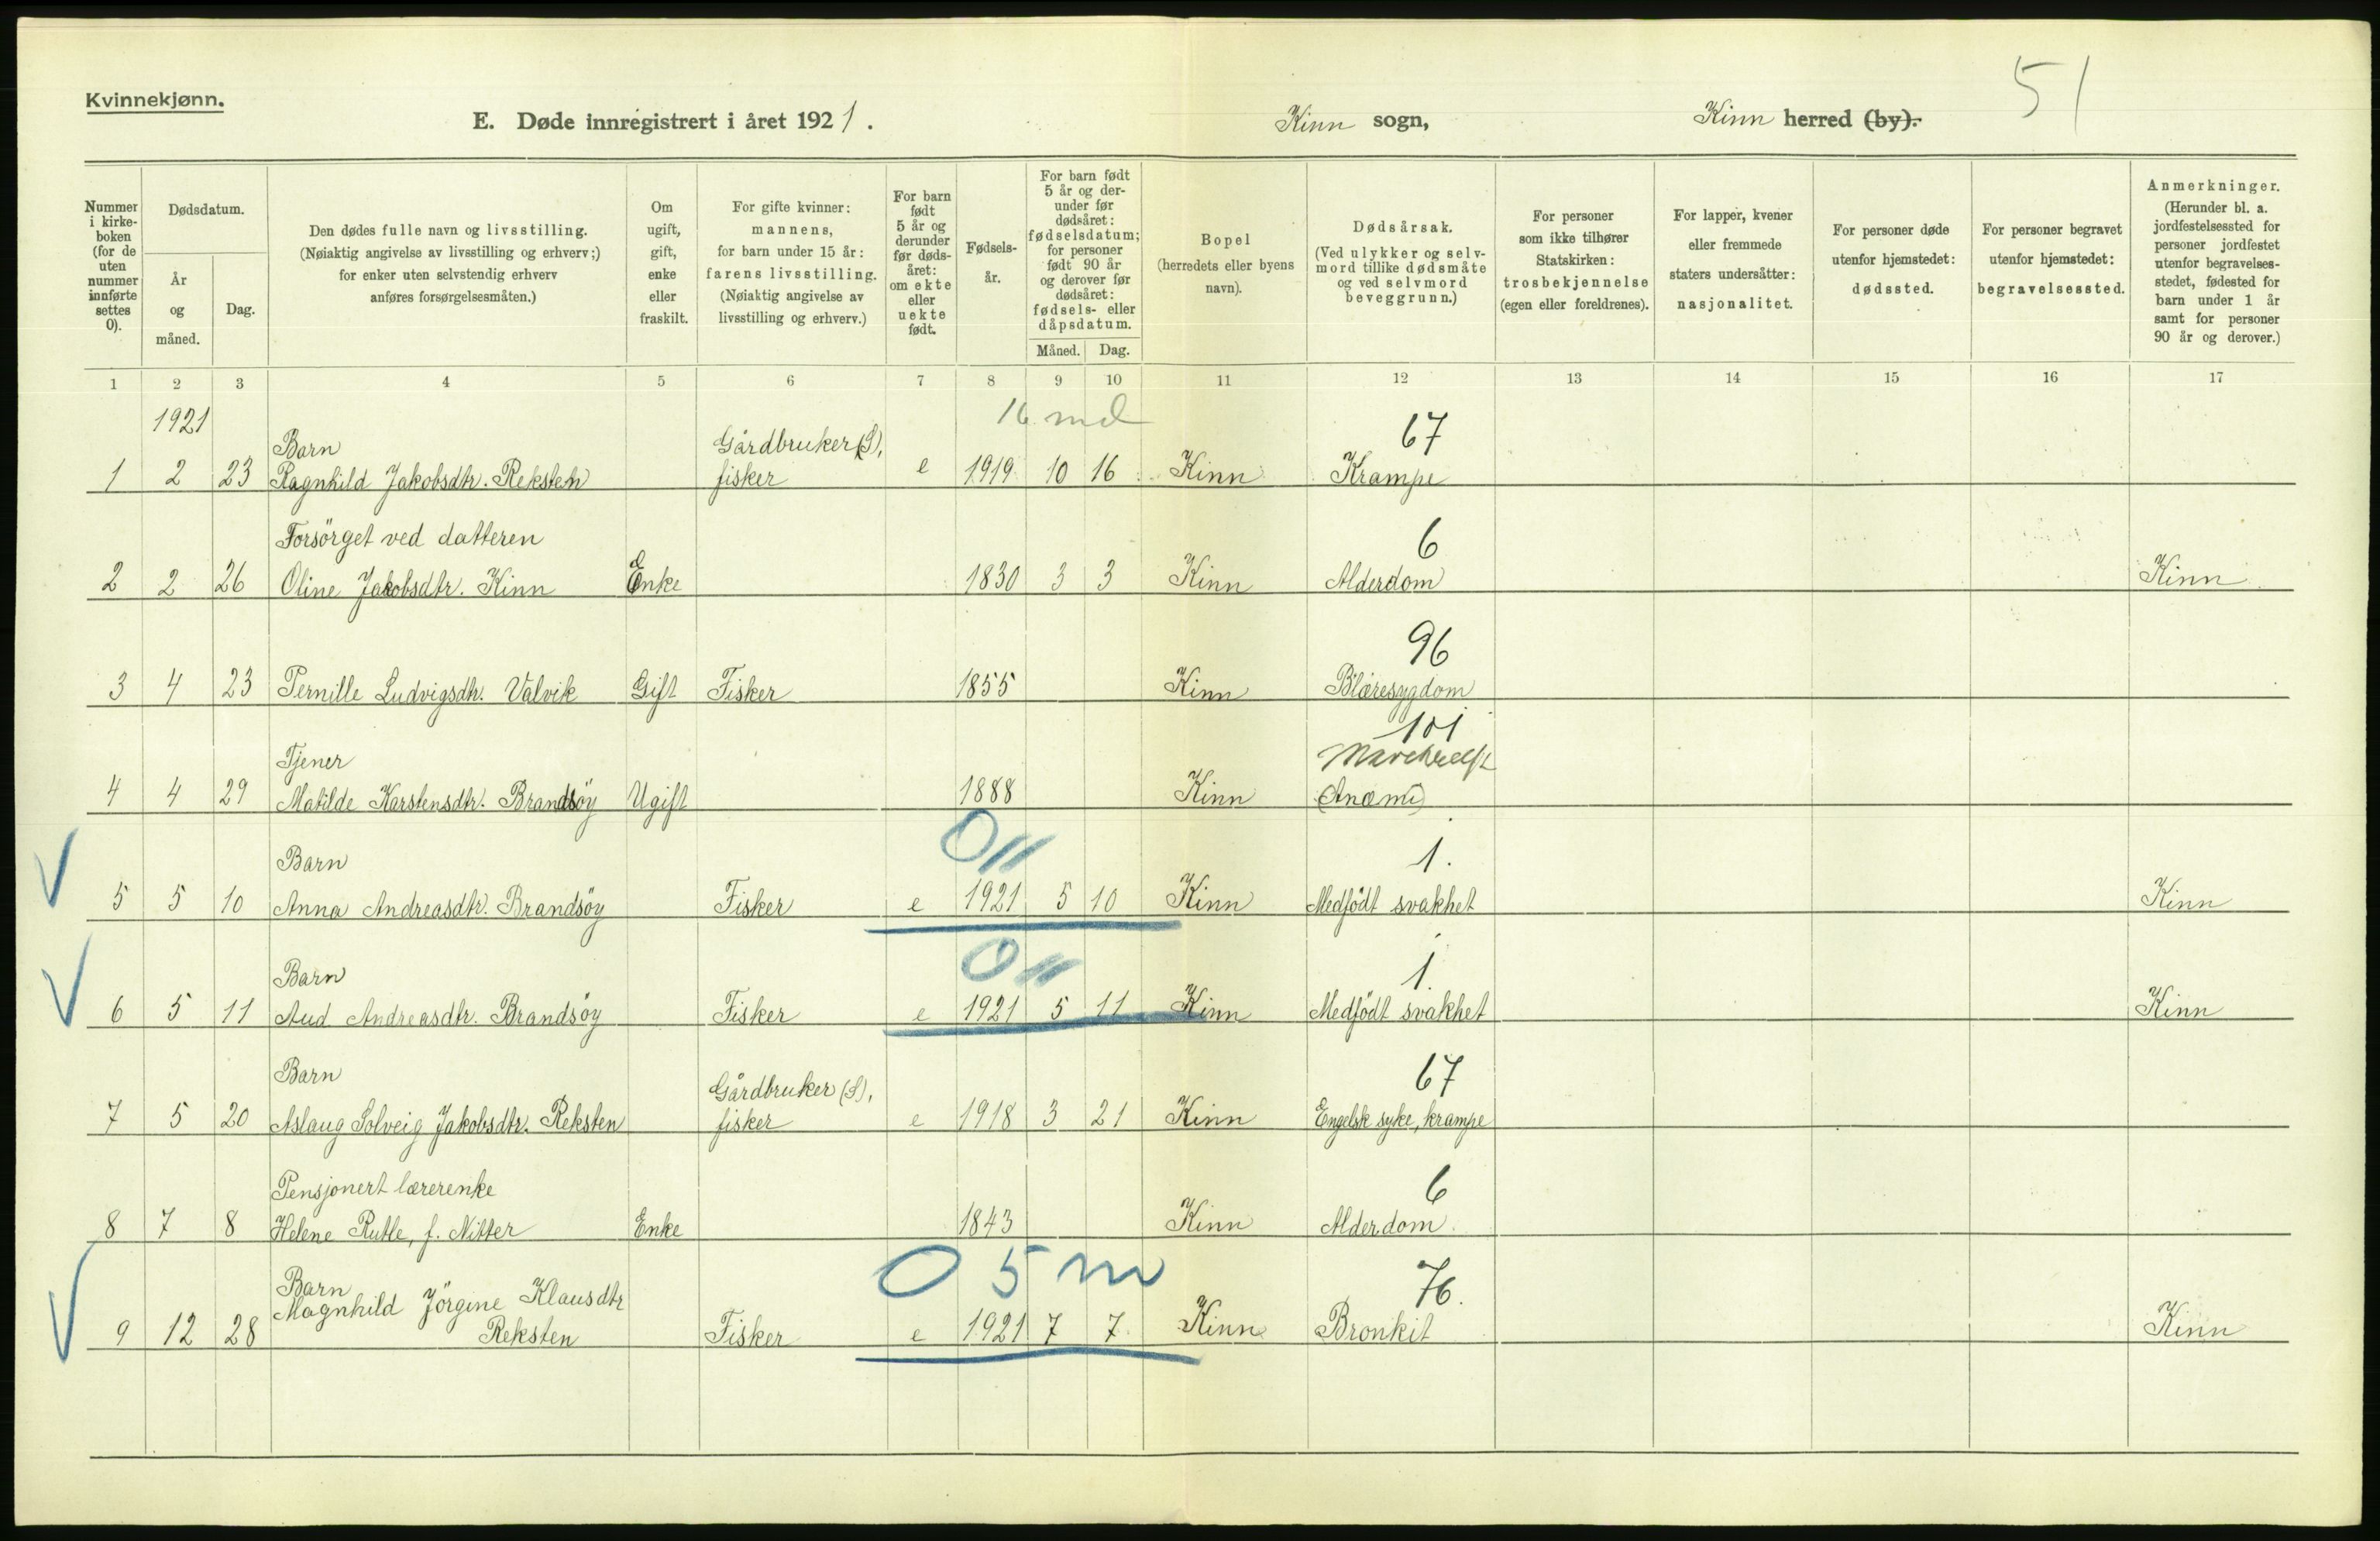 51
Kvinnekjønn.
E. Døde innregistrert i året 1921. Kinn sogn, Kinn herred (by).
Nummer i kirke-boken (for de uten nummer innførte settes 0).
Dødsdatum.
År og måned.
Dag.
Den dødes fulle navn og livsstilling. (Nøiaktig angivelse av livsstilling og erhverv;) for enker uten selvstendig erhverv anføres forsørgelsesmåten.)
Om ugift, gift, enke eller fraskilt.
For gifte kvinner: mannens, for barn under 15 år: farens livsstilling. (Nøiaktig angivelse av livsstilling og erhverv.)
For barn født 5 år og derunder før døds-året: om ekte eller uekte født.
Fødsels-år.
For barn født 5 år og der-under før dødsåret: fødselsdatum; for personer født 90 år og derover før dødsåret: fødsels- eller dåpsdatum.
Måned. Dag.
Bopel (herredets eller byens navn).
Dødsårsak. (Ved ulykker og selv-mord tillike dødsmåte og ved selvmord beveggrunn.)
For personer som ikke tilhører Statskirken: trosbekjennelse (egen eller foreldrenes).
For lapper, kvener eller fremmede staters undersåtter: nasjonalitet.
For personer døde utenfor hjemstedet: dødssted.
For personer begravet utenfor hjemstedet: begravelsessted.
Anmerkninger. (Herunder bl. a. jordfestelsessted for personer jordfestet utenfor begravelses-stedet, fødested for barn under 1 år samt for personer 90 år og derover.)
1 2 3 4 5 6 7 8 9 10 11 12 13 14 15 16 17
1921 16 md 67
Barn Gårdbruker (S),
1 2 23 Ragnhild Jakobsdtr. Reksten fisker e 1919 10 16 Kinn Krampe
Forsörget ved datteren 6
2 2 26 Oline Jakobsdtr. Kinn Enke 1830 3 3 Kinn Alderdom Kinn
96
3 4 23 Pernille Ludvigsdtr. Valvik Gift Fisker 1855 Kinn Blæresygdom
101
Tjener
4 4 29 Matilde Karstensdtr. Brandsöy Ugift 1888 Kinn (Anæmi)
0 11 1.
Barn
5 5 10 Anna Andreasdtr. Brandsöy Fisker e 1921 5 10 Kinn Medfödt svakhet Kinn
0 11 1.
Barn
6 5 11 Aud Andreasdtr. Brandsöy Fisker e 1921 5 11 Kinn Medfödt svakhet Kinn
67
Barn Gårdbruker (S),
7 5 20 Aslaug Solveig Jakobsdtr. Reksten fisker e 1918 3 21 Kinn Engelsk syke, krampe
Pensjonert lærerenke 6
8 7 8 Helene Rutle, f. Nitter Enke 1843 Kinn Alderdom.
0 5 m 76.
Barn
Magnhild Jörgine Klausdtr
9 12 28 Reksten Fisker e 1921 7 7 Kinn Bronkit Kinn